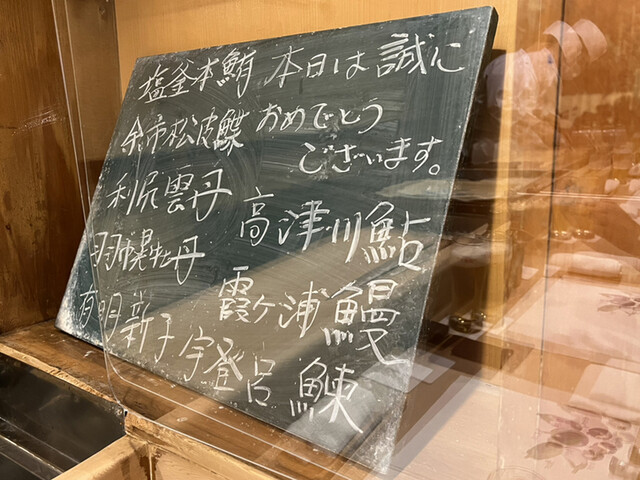 塩釜本鮪
余市松皮鰈
利尻雲丹
羽幌牡丹
有明新子
本日は誠に
おめでとう
ございます。
高津川鮎
霞ヶ浦鰻
宇登呂鰊